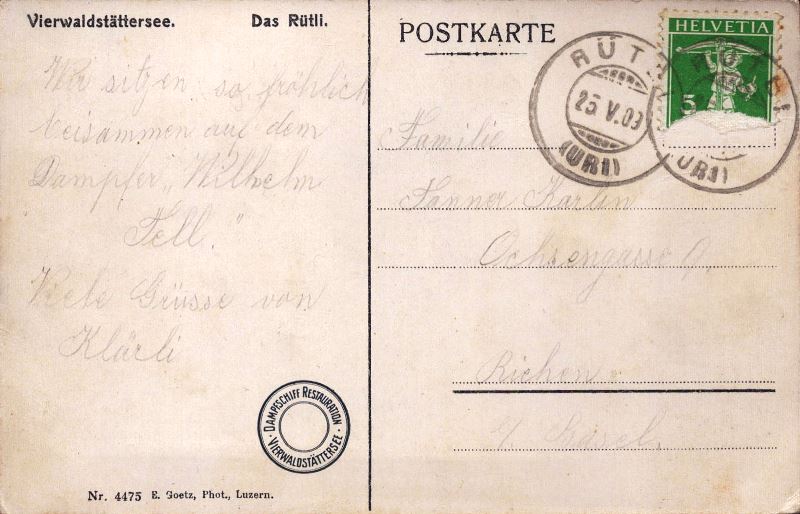 Vierwaldstättersee. Das Rütli.
Wir sitzen so fröhlich
beisammen auf dem
Dampfer „Wilhelm
Tell."
Viele Grüsse von
Klärli
DAMPFSCHIFF RESTAURATION
VIERWALDSTÄTTERSEE
Nr. 4475 E. Goetz, Phot., Luzern.
POSTKARTE
HELVETIA
5
RÜTLI
25 V.09
(URI)
RÜTLI
(URI)
Familie
Tanner Karlin
Ochsengasse 9,
Richen
b/ Basel.